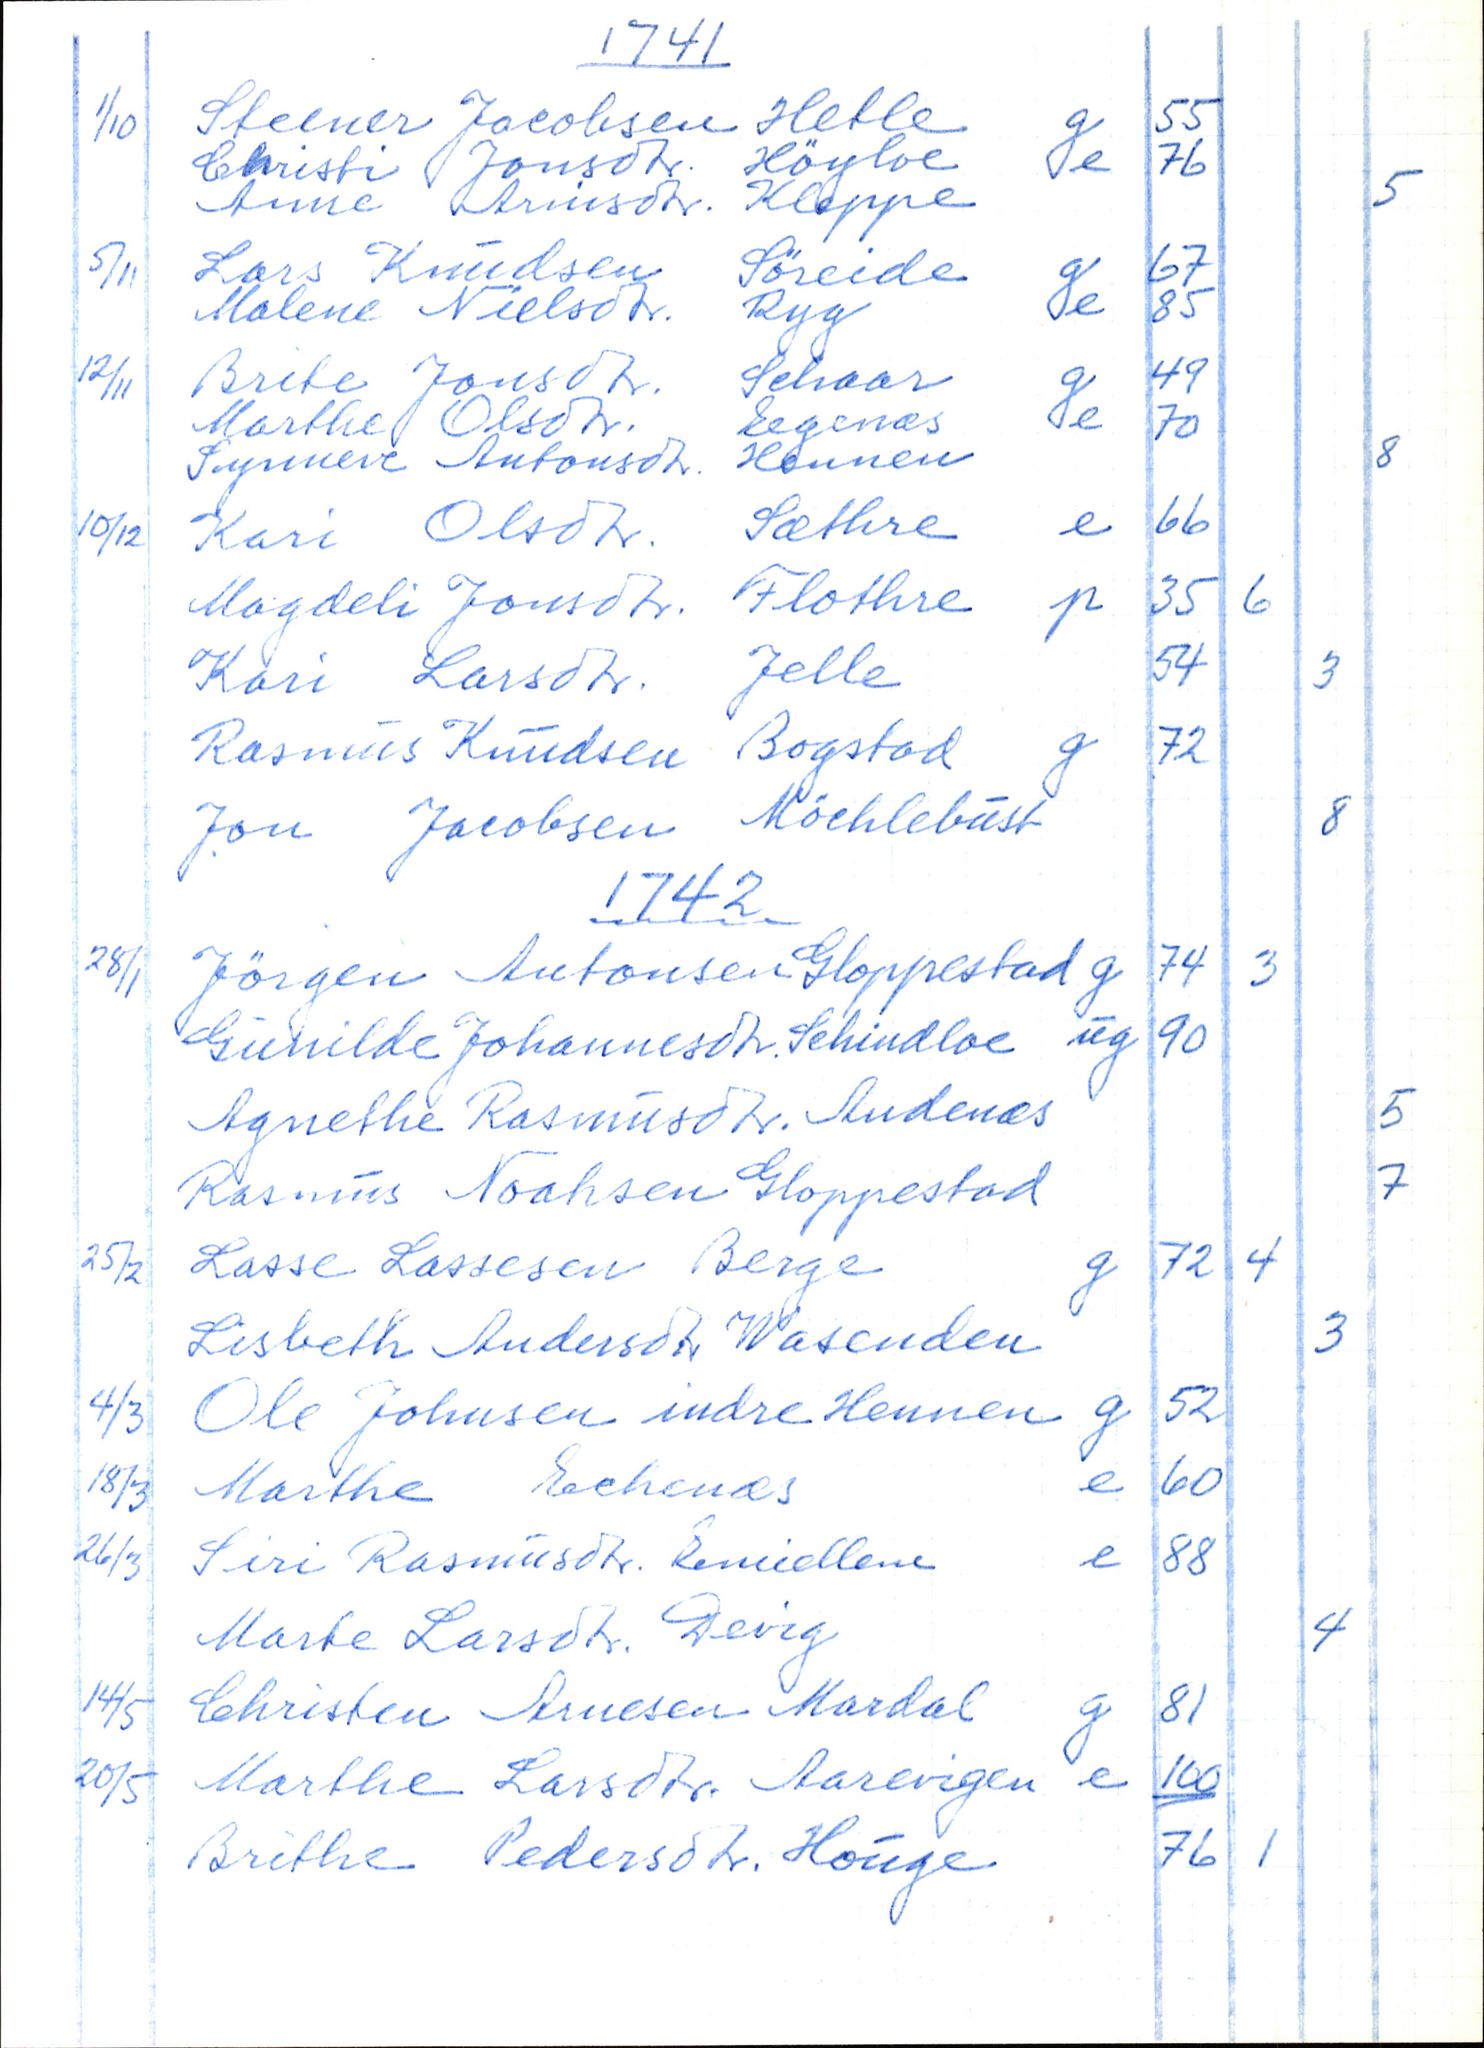 1741
1/10 Steener Jacobsen Hetle g 55
Christi Jonsdtr. Höyloe e 76
Anne Arnisdtr. Kloppe 5
5/11 Lars Knŭdsen Söreide g 67
Malene Nielsdtr. Ryg e 85
12/11 Brite Jonsdtr. Schaar g 49
Marthe Olsdtr. Eegenæs e 70
Synneve Antonsdtr. Hennen 8
10/12 Kari Olsdtr. Sæthre e 66
Magdeli Jonsdtr. Flothre p 35 6
Kari Larsdtr. Jelle 54 3
Rasmŭs Knŭdsen Bogstad g 72
Jon Jacobsen Möchlebŭst 8
1742
28/1 Jörgen Antonsen Gloppestad g 74 3
Gŭnilde Johannesdtr. Schindloe ŭg 90
Agnethe Rasmŭsdtr. Andenæs 5
Rasmŭs Noahsen Gloppestad 7
25/2 Lasse Lassesen Berge g 72 4
Lisbeth Andersdtr Wasenden 3
4/3 Ole Johnsen indre Hennen g 52
18/3 Marthe Echenæs e 60
26/3 Siri Rasmŭsdtr. e 88
Marte Larsdtr. Devig 4
14/5 Christen Arnesen Mardal g 81
20/5 Marthe Larsdtr. Aarevigen e 100
Brithe Pedersdtr. Hoŭge 76 1